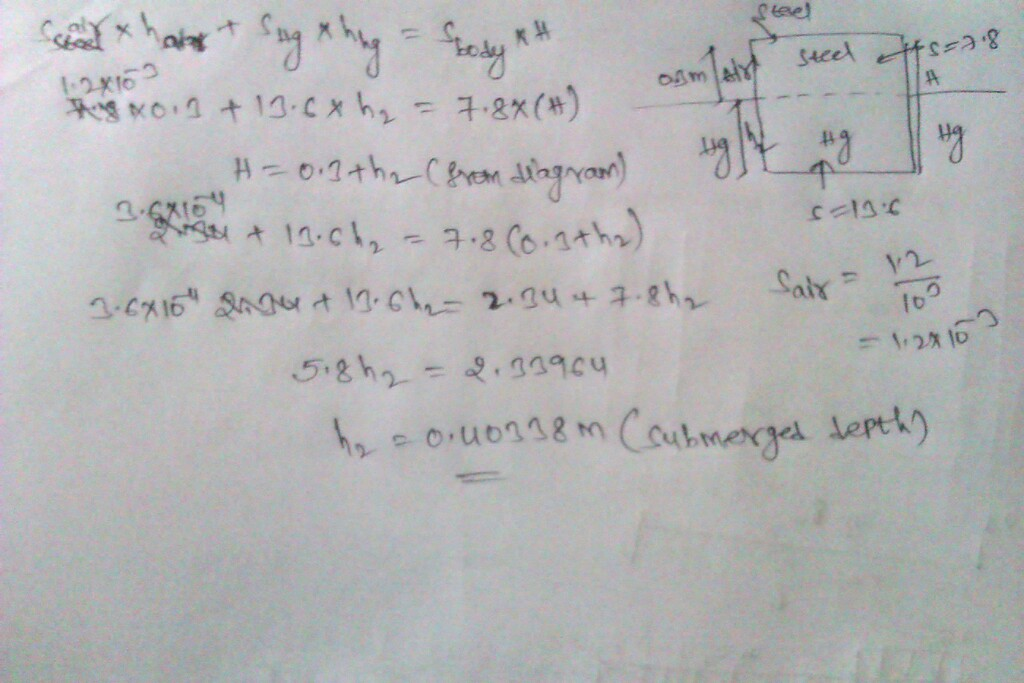 S air × h air + S Hg × h Hg = S body × H
1.2×10⁻³ × 0.3 + 13.6 × h₂ = 7.8×(H)
H = 0.3 + h₂ (from diagram)
3.6×10⁻⁴ + 13.6h₂ = 7.8(0.3+h₂)
3.6×10⁻⁴ + 13.6h₂ = 2.34 + 7.8h₂
5.8h₂ = 2.33964
h₂ = 0.40338m (submerged depth)
Steel
steel
S=7.8
0.3m
air
H
Hg
h₂
Hg
Hg
S=13.6
S air = 1.2/10³
= 1.2×10⁻³